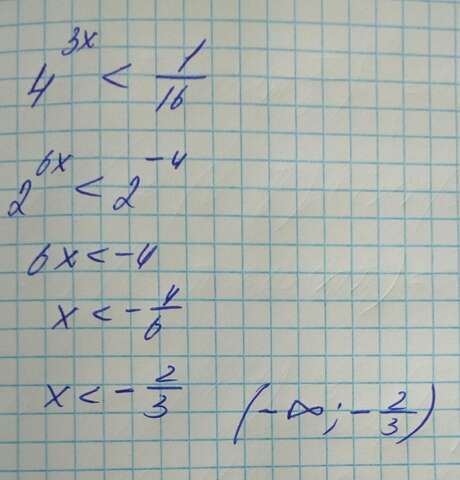 4^{3x} < \frac{1}{16}
2^{6x} < 2^{-4}
6x < -4
x < -\frac{4}{6}
x < -\frac{2}{3} (-∞; -\frac{2}{3})